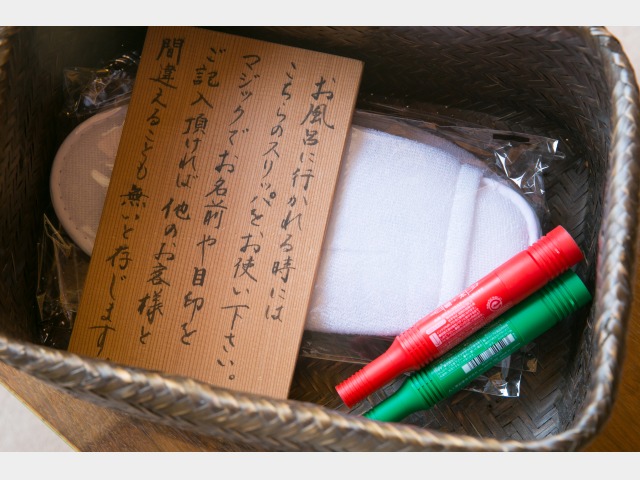 お風呂に行かれる時には
こちらのスリッパをお使い下さい。
マジックでお名前や目印を
ご記入頂ければ他のお客様と
間違えることも無いと存じます。